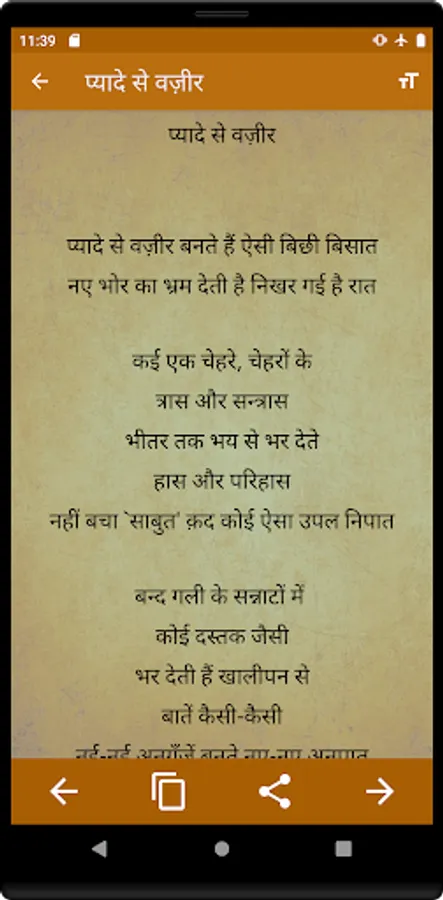 11:39
प्यादे से वज़ीर
प्यादे से वज़ीर
प्यादे से वज़ीर बनते हैं ऐसी बिछी बिसात
नए भोर का भ्रम देती है निखर गई है रात
कई एक चेहरे, चेहरों के
त्रास और सन्त्रास
भीतर तक भय से भर देते
हास और परिहास
नहीं बचा `साबुत' क़द कोई ऐसा उपल निपात
बन्द गली के सन्नाटों में
कोई दस्तक जैसी
भर देती हैं खालीपन से
बातें कैसी-कैसी
नई-नई अनुगूँजें बनते नए-नए अनुपात